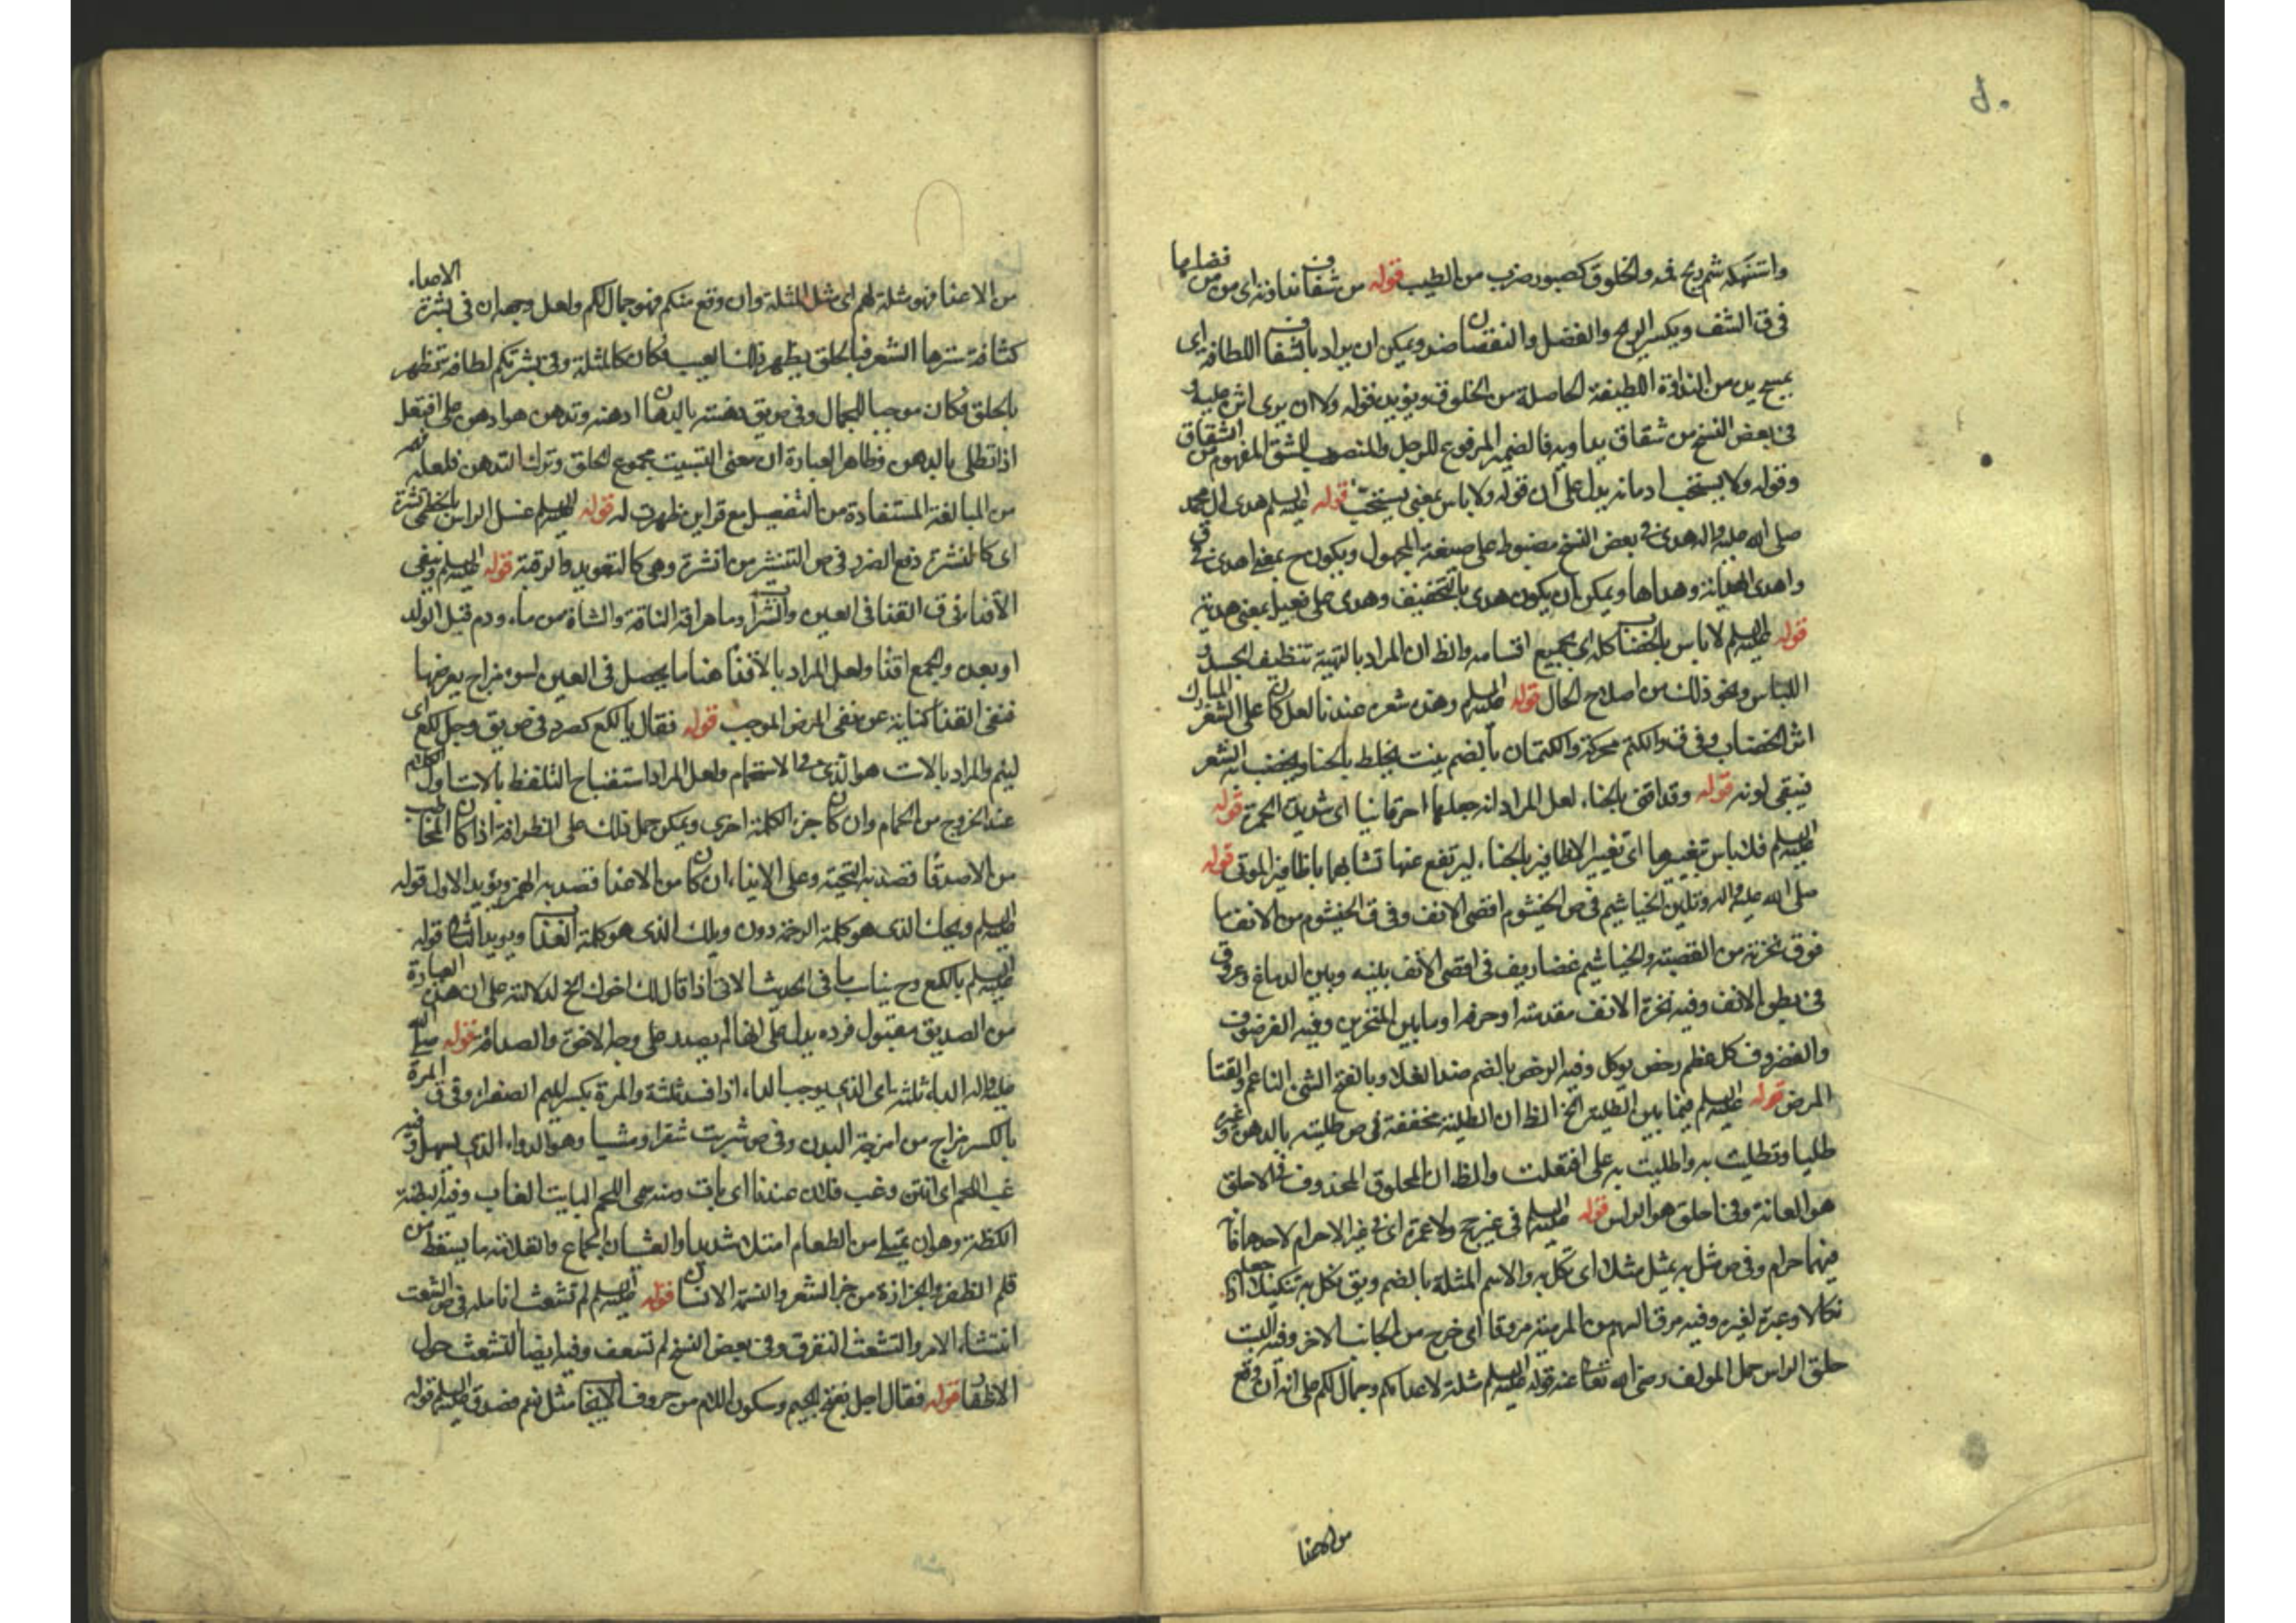 واستنهكه شم ريح فمه والخلوق كصبور ضرب من الطيب قوله من شقاق نداوته اى من من فضلها
فى ق الشف ويكسر الربح والفضل والنقصان ضد ويمكن ان يراد بالشفاف اللطافة اى
يمسح يده من النداوة اللطيفة الحاصلة من الخلوق ويؤيده قوله ولا ان يرى اثره عليه و
فى بعض النسخ من شقاق يداويه فالضمير المرفوع للرجل والمنصوب للشق المفهوم من الشقاق
وقوله ولا يستحب ادمانه يدل على ان قوله ولا باس بمعنى يستحب قوله عليه السلم هدى ال محمد
صلى الله عليه واله هدى فى بعض النسخ مضبوط على صيغة المجهول ويكون ح بمعنى اهدى فى ق
واهدى الهدية وهداها ويمكن ان يكون هدى بالتخفيف وهدى على فعيل بمعنى هدية
قوله عليه السلم لا باس بالخضاب كله اى بجميع اقسامه والظ ان المراد بالتهيئة تنظيف الجسد و
اللباس ونحو ذلك من اصلاح الحال قوله عليه السلم وهذه شعره عندنا لعل كان على الشعر المبارك
اثر الخضاب وفى ق والكتم محركة والكتمان بالضم نبت يخلط بالحنا ويخضب به الشعر
فيبقى لونه قوله وقد اقنى بالحناء لعل المراد انه جعلها احمر قانيا اى شديد الحمرة قوله
عليه السلم فلا باس بتغييرها اى تغيير الاظافير بالحناء ليرتفع عنها تشابهها باظافير الموتى قوله
صلى الله عليه واله وتلين الخياشيم فى ص الخيشوم اقصى الانف وفى ق الخيشوم من الانف ما
فوق نخرته من القصبة والخياشيم غضاريف فى اقصى الانف بينه وبين الدماغ وعروق
فى بطن الانف وفيه نخرة الانف مقدمته او خرقه او ما بين المنخرين وفيه الغرضوف
والغضروف كل عظم رخص يوكل وفيه الرخص بالضم ضد الغلاء وبالفتح الشئ الناعم والقتا
المرض قوله عليه السلم فيما بين الطلية الخ الظ ان الطلية مخففة فى ص طليته بالدهن وغيره
طليا وتطليت به واطليت به على افتعلت والظ ان المحلوق المحذوف فى لا احلق
هو العانة وفى احلق هو الراس قوله عليه السلم فى غير حج ولا عمرة اى فى غير الاحرام لاحدهما فانه
فيهما حرام وفى ص مثل به يمثل مثلا اى نكل به والاسم المثلة بالضم ويق نكل به تنكيلا اذا جعله
نكالا وعبرة لغيره وفيه مرق السهم من الرمية مروقا اى خرج من الجانب الاخر وفيه السبت
حلق الراس حمل المولف رضى الله تعالى عنه قوله عليه السلم مثلة لاعدائكم وجمال لكم على انه ان وقع
من الاعدا
من الاعدا فهو مثلة لهم اى مثل المثلة وان وقع منكم فهو جمال لكم ولعل وجهه ان فى بشرة الاعداء
كثافة سترها الشعر فبالحلق يظهر ذلك العيب فكان كالمثلة وفى بشرتكم لطافة تظهر
بالحلق فكان موجبا للجمال وفى ص يق دهنته بالدهان ادهنه وتدهن هو ادهن على افتعل
اذا تطلى بالدهن وظاهر العبارة ان معنى التسبيت مجموع الحلق وترك التدهن فلعله فهمه
من المبالغة المستفادة من التفعيل مع قراين ظهرت له قوله عليه السلم غسل الراس بالخطمى نشرة
اى كالنشرة دفع الضرر فى ص التنشير من النشرة وهى كالتعويذ والرقية قوله عليه السلم وينفى
الاقذاء فى ق القذا فى العين والشراب وما هراقه الناقة والشاة من ماء ودم قبل الولد
او بعده والجمع اقذا ولعل المراد بالاقذا هنا ما يحصل فى العين لسوء مزاج يعرضها
فنفى القذا كناية عن نفى المرض الموجب قوله فقال يا لكع كصرد فى ص يق رجل لكع اى
لئيم والمراد بالاست هو الذى فى الاستحمام ولعل المراد استقباح التلفظ بالاست اول الكلام
عند الخروج من الحمام وان كان جزء الكلمة اخرى ويمكن حمل ذلك على الظرافة اذا كان المخاطب
من الاصدقا قصد به التحية وعلى الايذاء ان كان من الاعدا قصد به الهجر ويؤيد الاول قوله
عليه السلم ويحك الذى هو كلمة الرحمة دون ويلك الذى هو كلمة العذاب ويويد الثانى قوله
عليه السلم يا لكع وح يناسب ما فى الحديث الاتى اذا قال لك اخوك الخ لدلالته على ان هذه العبارة
من الصديق مقبول فرده يدل على انها لم يصدر على وجه الاخوة والصداقة قوله صلى الله
عليه واله الداء ثلثه اى الذى يوجب الداء اذا فسد ثلثة والمرة بكسر الميم الصفراء وفى ق المرة
بالكسر مزاج من امزجة البدن وفى ص شربت مشوا ومشيا وهو الدواء الذى يسهل وفيه
غب اللحم اى انتن وغب فلان عندنا اى بات ومنه سمى اللحم البايت الغاب وفيه البطنة
الكظة وهو ان يمتلى من الطعام امتلاء شديدا والغشيان الجماع والقلامة ما يسقط من
قلم الظفر والجزازة من جز الشعر والنسمة الانسان قوله عليه السلم لم تشعث انامله فى ص الشعث
انتشار الامر والتشعث التفرق وفى بعض النسخ لم تسعف وفيه ايضا التشعث حول
الاظفار قوله فقال اجل بفتح الجيم وسكون اللام من حروف الايجاب مثل نعم فصدق عليه السلم قوله